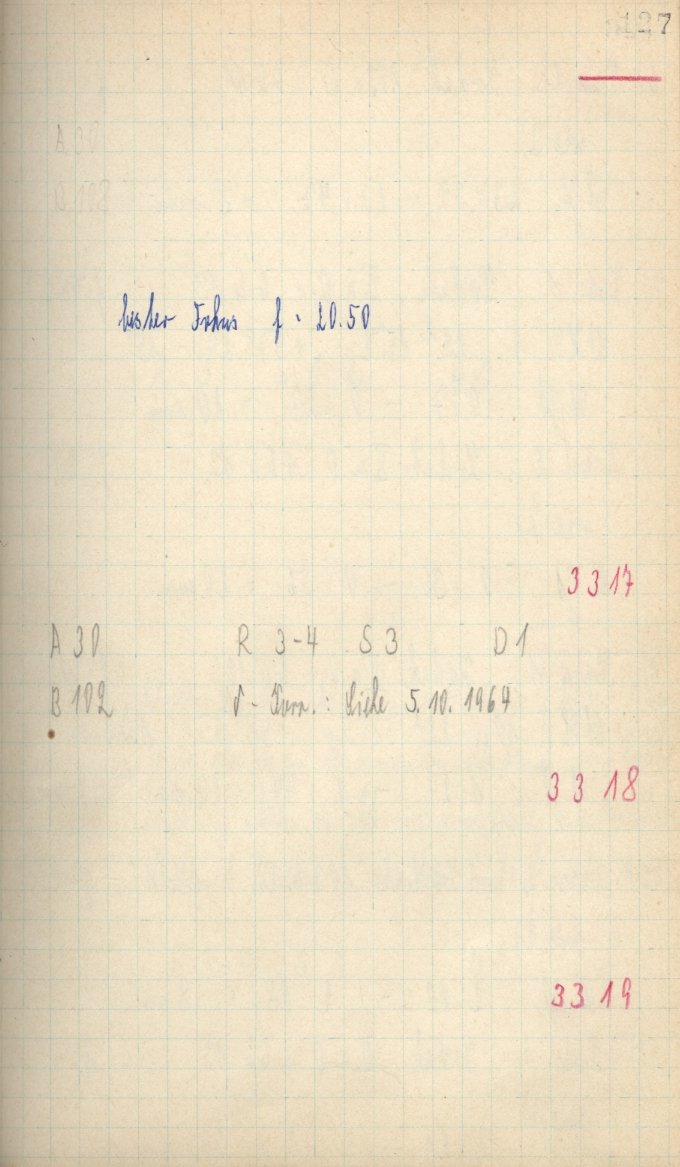 127
A 30
B 108
bester Fokus f = 20.50
3317
A 30 R 3-4 S 3 D 1
B 102 δ - Korr.: Siehe 5.10.1964
3318
3319